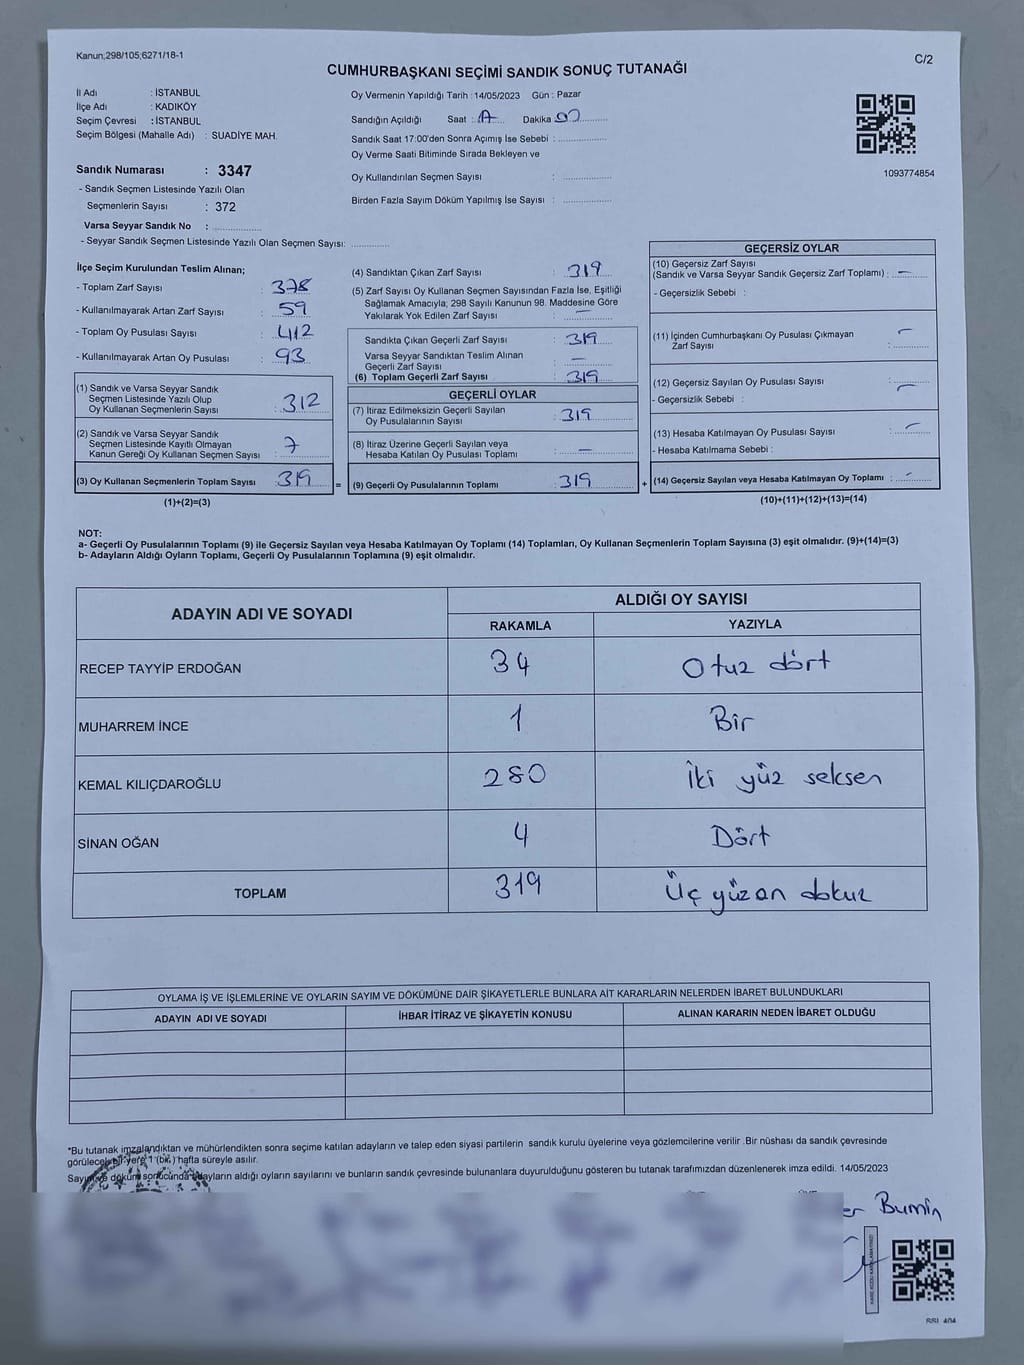 Kanun;298/105;6271/18-1
C/2
CUMHURBAŞKANI SEÇİMİ SANDIK SONUÇ TUTANAĞI
İl Adı : İSTANBUL
İlçe Adı : KADIKÖY
Seçim Çevresi : İSTANBUL
Seçim Bölgesi (Mahalle Adı) : SUADİYE MAH.
Sandık Numarası : 3347
- Sandık Seçmen Listesinde Yazılı Olan
Seçmenlerin Sayısı : 372
Varsa Seyyar Sandık No :
- Seyyar Sandık Seçmen Listesinde Yazılı Olan Seçmen Sayısı:
Oy Vermenin Yapıldığı Tarih : 14/05/2023 Gün : Pazar
Sandığın Açıldığı Saat : Dakika
Sandık Saat 17:00'den Sonra Açımış İse Sebebi :
Oy Verme Saati Bitiminde Sırada Bekleyen ve
Oy Kullandırılan Seçmen Sayısı :
Birden Fazla Sayım Döküm Yapılmış İse Sayısı :
1093774854
İlçe Seçim Kurulundan Teslim Alınan;
- Toplam Zarf Sayısı : 378
- Kullanılmayarak Artan Zarf Sayısı : 59
- Toplam Oy Pusulası Sayısı : 412
- Kullanılmayarak Artan Oy Pusulası : 93
(1) Sandık ve Varsa Seyyar Sandık
Seçmen Listesinde Yazılı Olup
Oy Kullanan Seçmenlerin Sayısı : 312
(2) Sandık ve Varsa Seyyar Sandık
Seçmen Listesinde Kayıtlı Olmayan
Kanun Gereği Oy Kullanan Seçmen Sayısı : 7
(3) Oy Kullanan Seçmenlerin Toplam Sayısı : 319
(1)+(2)=(3)
=
(4) Sandıktan Çıkan Zarf Sayısı : 319
(5) Zarf Sayısı Oy Kullanan Seçmen Sayısından Fazla İse, Eşitliği
Sağlamak Amacıyla; 298 Sayılı Kanunun 98. Maddesine Göre
Yakılarak Yok Edilen Zarf Sayısı : —
Sandıkta Çıkan Geçerli Zarf Sayısı : 319
Varsa Seyyar Sandıktan Teslim Alınan
Geçerli Zarf Sayısı : —
(6) Toplam Geçerli Zarf Sayısı : 319
GEÇERLİ OYLAR
(7) İtiraz Edilmeksizin Geçerli Sayılan
Oy Pusulalarının Sayısı : 319
(8) İtiraz Üzerine Geçerli Sayılan veya
Hesaba Katılan Oy Pusulası Toplamı : —
(9) Geçerli Oy Pusulalarının Toplamı : 319
+
GEÇERSİZ OYLAR
(10) Geçersiz Zarf Sayısı
(Sandık ve Varsa Seyyar Sandık Geçersiz Zarf Toplamı) : —
- Geçersizlik Sebebi :
(11) İçinden Cumhurbaşkanı Oy Pusulası Çıkmayan
Zarf Sayısı : —
(12) Geçersiz Sayılan Oy Pusulası Sayısı : —
- Geçersizlik Sebebi :
(13) Hesaba Katılmayan Oy Pusulası Sayısı : —
- Hesaba Katılmama Sebebi :
(14) Geçersiz Sayılan veya Hesaba Katılmayan Oy Toplamı : -
(10)+(11)+(12)+(13)=(14)
NOT:
a- Geçerli Oy Pusulalarının Toplamı (9) ile Geçersiz Sayılan veya Hesaba Katılmayan Oy Toplamı (14) Toplamları, Oy Kullanan Seçmenlerin Toplam Sayısına (3) eşit olmalıdır. (9)+(14)=(3)
b- Adayların Aldığı Oyların Toplamı, Geçerli Oy Pusulalarının Toplamına (9) eşit olmalıdır.
ADAYIN ADI VE SOYADI
ALDIĞI OY SAYISI
RAKAMLA YAZIYLA
RECEP TAYYİP ERDOĞAN 34 Otuz dört
MUHARREM İNCE 1 Bir
KEMAL KILIÇDAROĞLU 280 İki yüz seksen
SİNAN OĞAN 4 Dört
TOPLAM 319 Üç yüzon dokuz
OYLAMA İŞ VE İŞLEMLERİNE VE OYLARIN SAYIM VE DÖKÜMÜNE DAİR ŞİKAYETLERLE BUNLARA AİT KARARLARIN NELERDEN İBARET BULUNDUKLARI
ADAYIN ADI VE SOYADI İHBAR İTİRAZ VE ŞİKAYETİN KONUSU ALINAN KARARIN NEDEN İBARET OLDUĞU
*Bu tutanak imzalandıktan ve mühürlendikten sonra seçime katılan adayların ve talep eden siyasi partilerin sandık kurulu üyelerine veya gözlemcilerine verilir .Bir nüshası da sandık çevresinde
görülecek bir yere 1 (bir) hafta süreyle asılır.
Sayım ve döküm sonucunda adayların aldığı oyların sayılarını ve bunların sandık çevresinde bulunanlara duyurulduğunu gösteren bu tutanak tarafımızdan düzenlenerek imza edildi. 14/05/2023
er Bumin